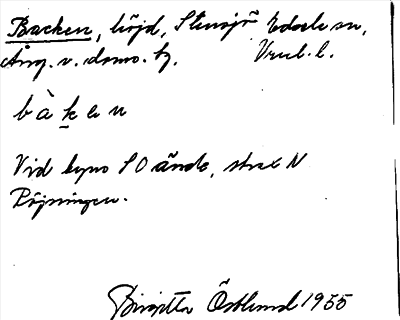 Backen, höjd, Stensjö Edsele sn,
Ång. v. doms. tg. Vrml. l.
bàḵen
Vid byns SO ände, strax N
Röjningen.
Birgitta Östlund 1935